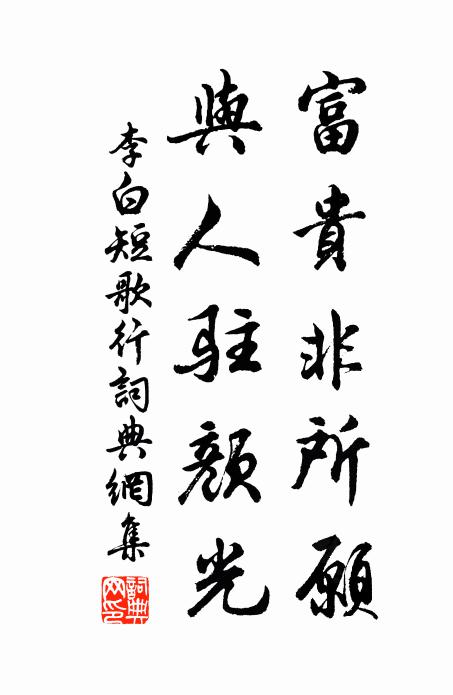 富貴非所願
與人駐顏光
李白短歌行詞典網集
詞典
网印